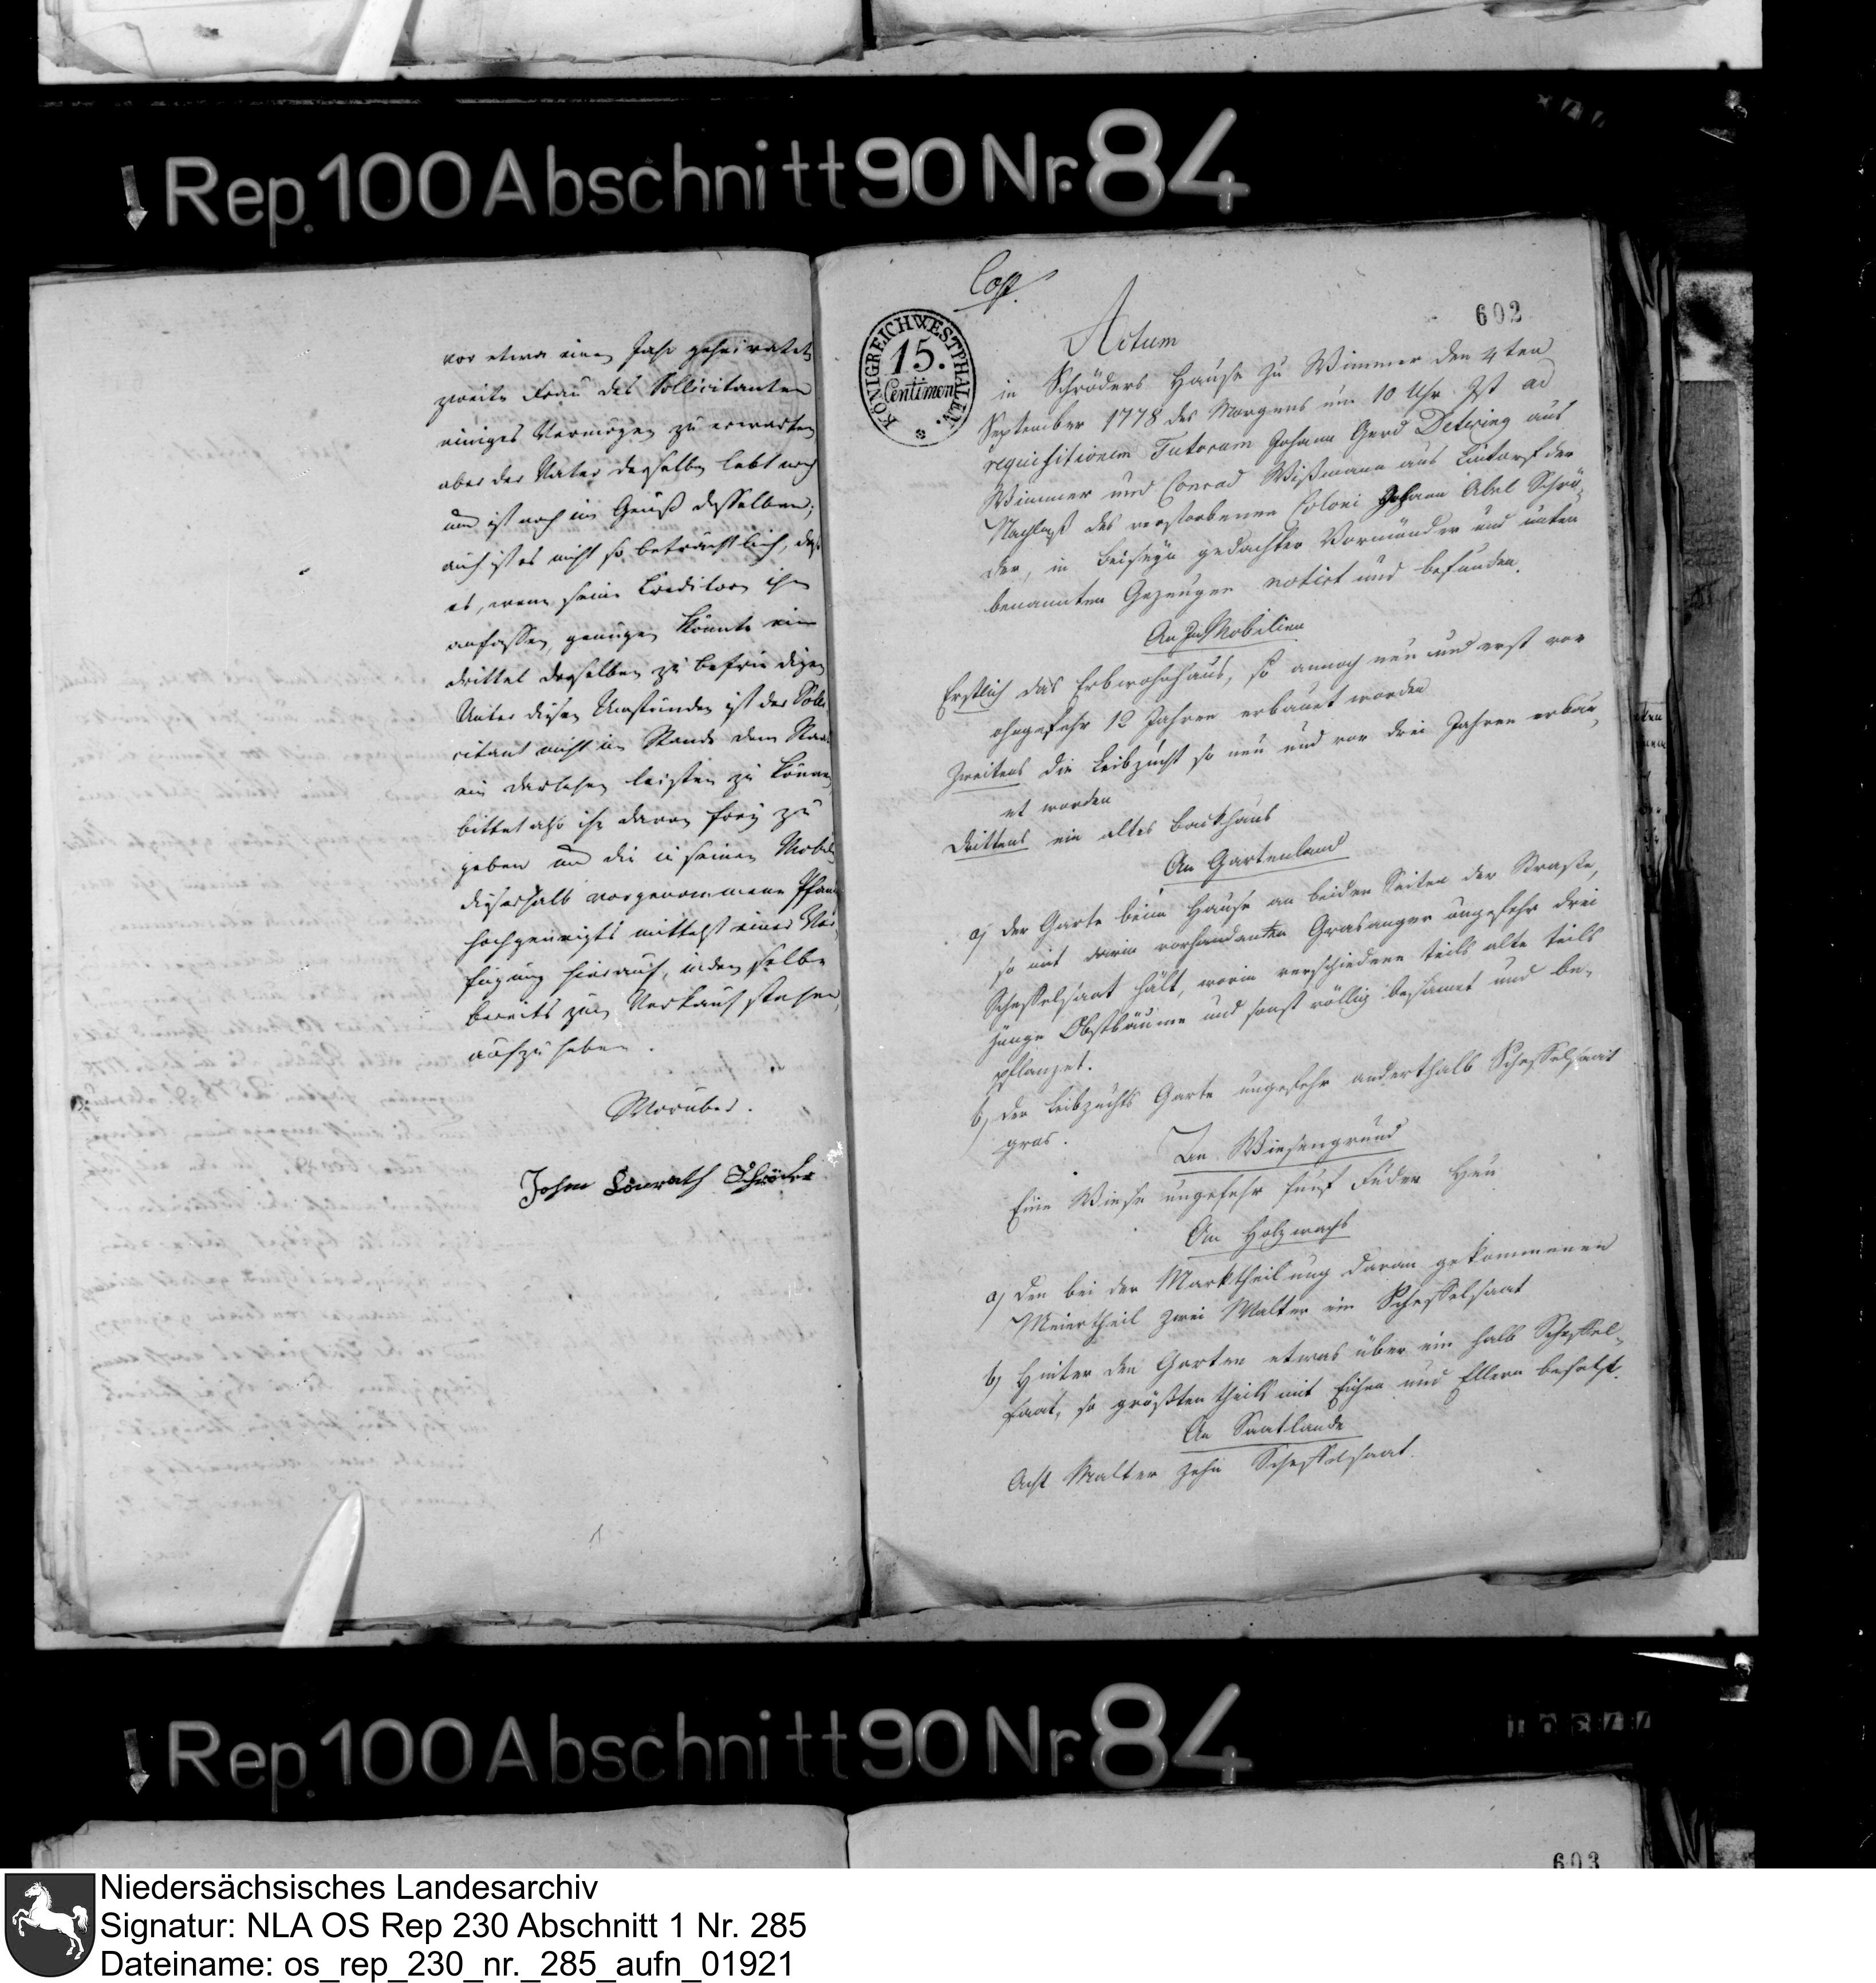 Rep. 100 Abschnitt 90 Nr. 84
vor etwa einem Jahr geheiratete
zweite Frau des Sollicitanten
einiges Vermögen zu erwarten
aber der Vater derselben lebt noch
und ist noch im Genuß desselben;
auch ist es nicht so beträchtlich, daß
es, wenn seine Creditores ihn
anfassen, genügen könnte ein
drittel derselben zu befriedigen
Unter diesen Umständen ist der Solli
citant nicht im Stande dem Staat
ein Darlehen leisten zu können
bittet also ihn davon frey zu
geben und die in seinen Mobilien
dieserhalb vorgenommene Pfandung
hochgeneigts mittelst einer Ver
fügung hierauf, indem selbe
bereits zum Verkauf stehen,
aufzuheben.
Worüber.
Johan Conrath Schröder
Cop.
602
KÖNIGREICH WESTPHALEN.
15.
Centimen
Actum
in Schröders Hause zu Wimmer den 4ten
September 1778 des Morgens um 10 Uhr Ist ad
requisitionem Tutorum Johann Gerd Detering aus
Wimmer und Conrad Wißmann aus Lintorf der
Nachlaß des verstorbenen Coloni Johann Abel Schrö-
der, in Beiseyn gedachter Vormünder und unten
benannten Gezeugen notirt und befunden.
An Im̅obilien
Erstlich das Erbwohnhaus, so annoch neu und erst vor
ohngefehr 12 Jahren erbauet worden
Zweitens die Leibzucht so neu und vor drei Jahren erbau-
et worden
Drittens ein altes Backhaus
An Gartenland
a) Der Garte beim Hause an beiden Seiten der Straße,
so mit darin vorhandenen Grasanger ungefehr drei
Scheffelsaat hält, worin verschiedene teils alte teils
junge Obstbäume und sonst völlig besamet und be-
pflanzet.
b) Der Leibzuchts Garte ungefehr anderthalb Scheffelsaat
gros.
An Wiesengrund
Eine Wiese ungefehr fünf Fuder Heu
An Holzwachs
a) Den bei der Marktheilung daran gekommenen
Meiertheil zwei Malter ein Scheffelsaat
b) Hinter den Garten etwas über ein halb Scheffel-
saat, so größten theils mit Eichen und Ellern besetzt.
An Saatlande
Acht Malter zehn Scheffelsaat.
Rep. 100 Abschnitt 90 Nr. 84
603
Niedersächsisches Landesarchiv
Signatur: NLA OS Rep 230 Abschnitt 1 Nr. 285
Dateiname: os_rep_230_nr._285_aufn_01921